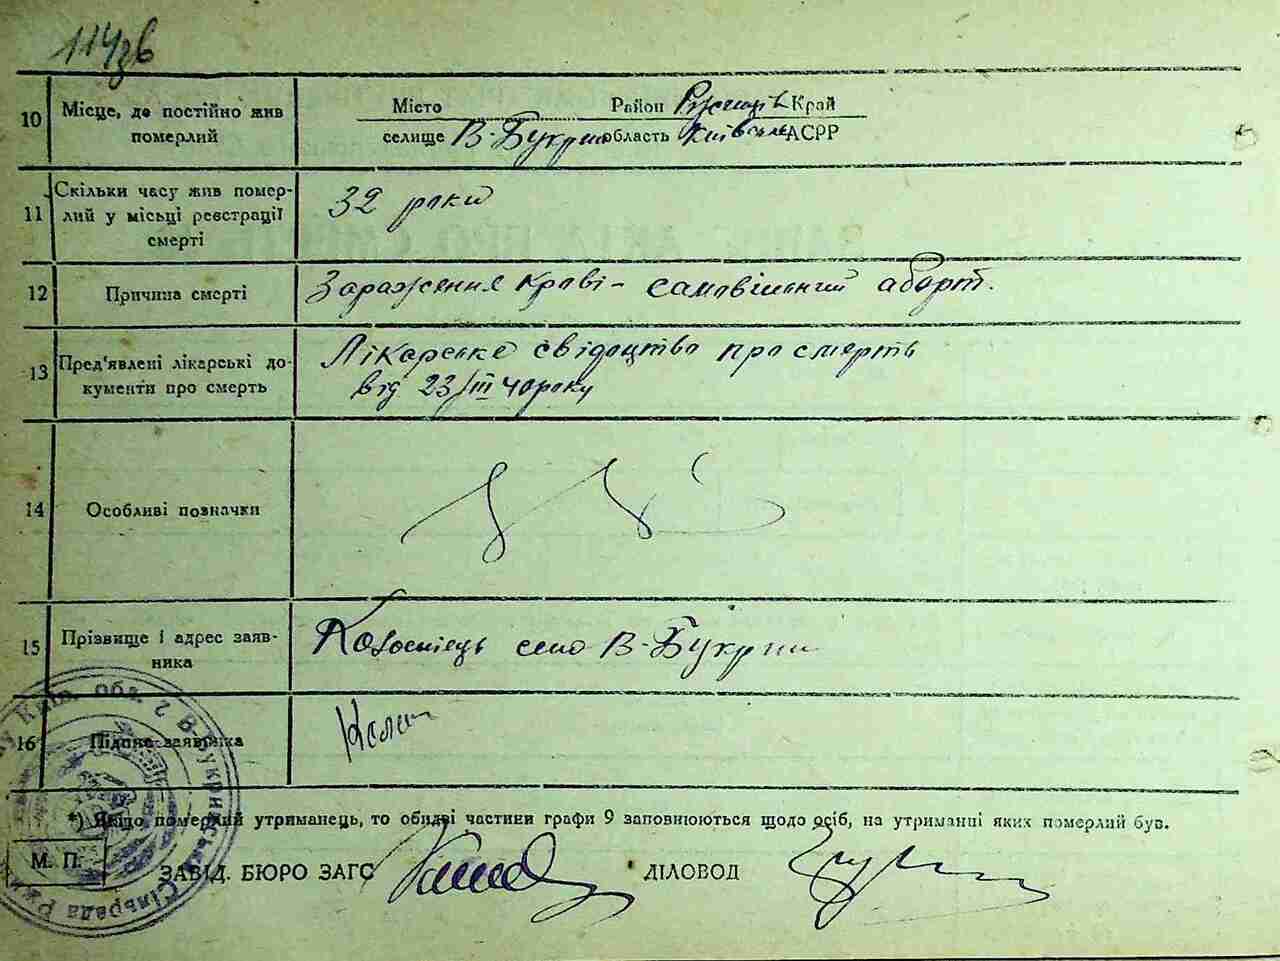 114зв
10 Місце, де постійно жив померлий
Місто Район Ржищів Край
селище В-Букрин область Київська АСРР
11 Скільки часу жив помер-
лий у місьці реєстрації
смерті
32 роки
12 Причина смерті
Зараження крові - самовільний аборт.
13 Пред'явлені лікарські до-
кументи про смерть
Лікарське свідоцтво про смерть
від 23/III 40 року
14 Особливі позначки
15 Прізвище і адрес заяв-
ника
село В-Букрин
16 Підпис заявника
*) Якщо померлий утриманець, то обидві частини графи 9 заповнюються щодо осіб, на утриманні яких померлий був.
М. П.
ЗАВІД. БЮРО ЗАГС ДІЛОВОД